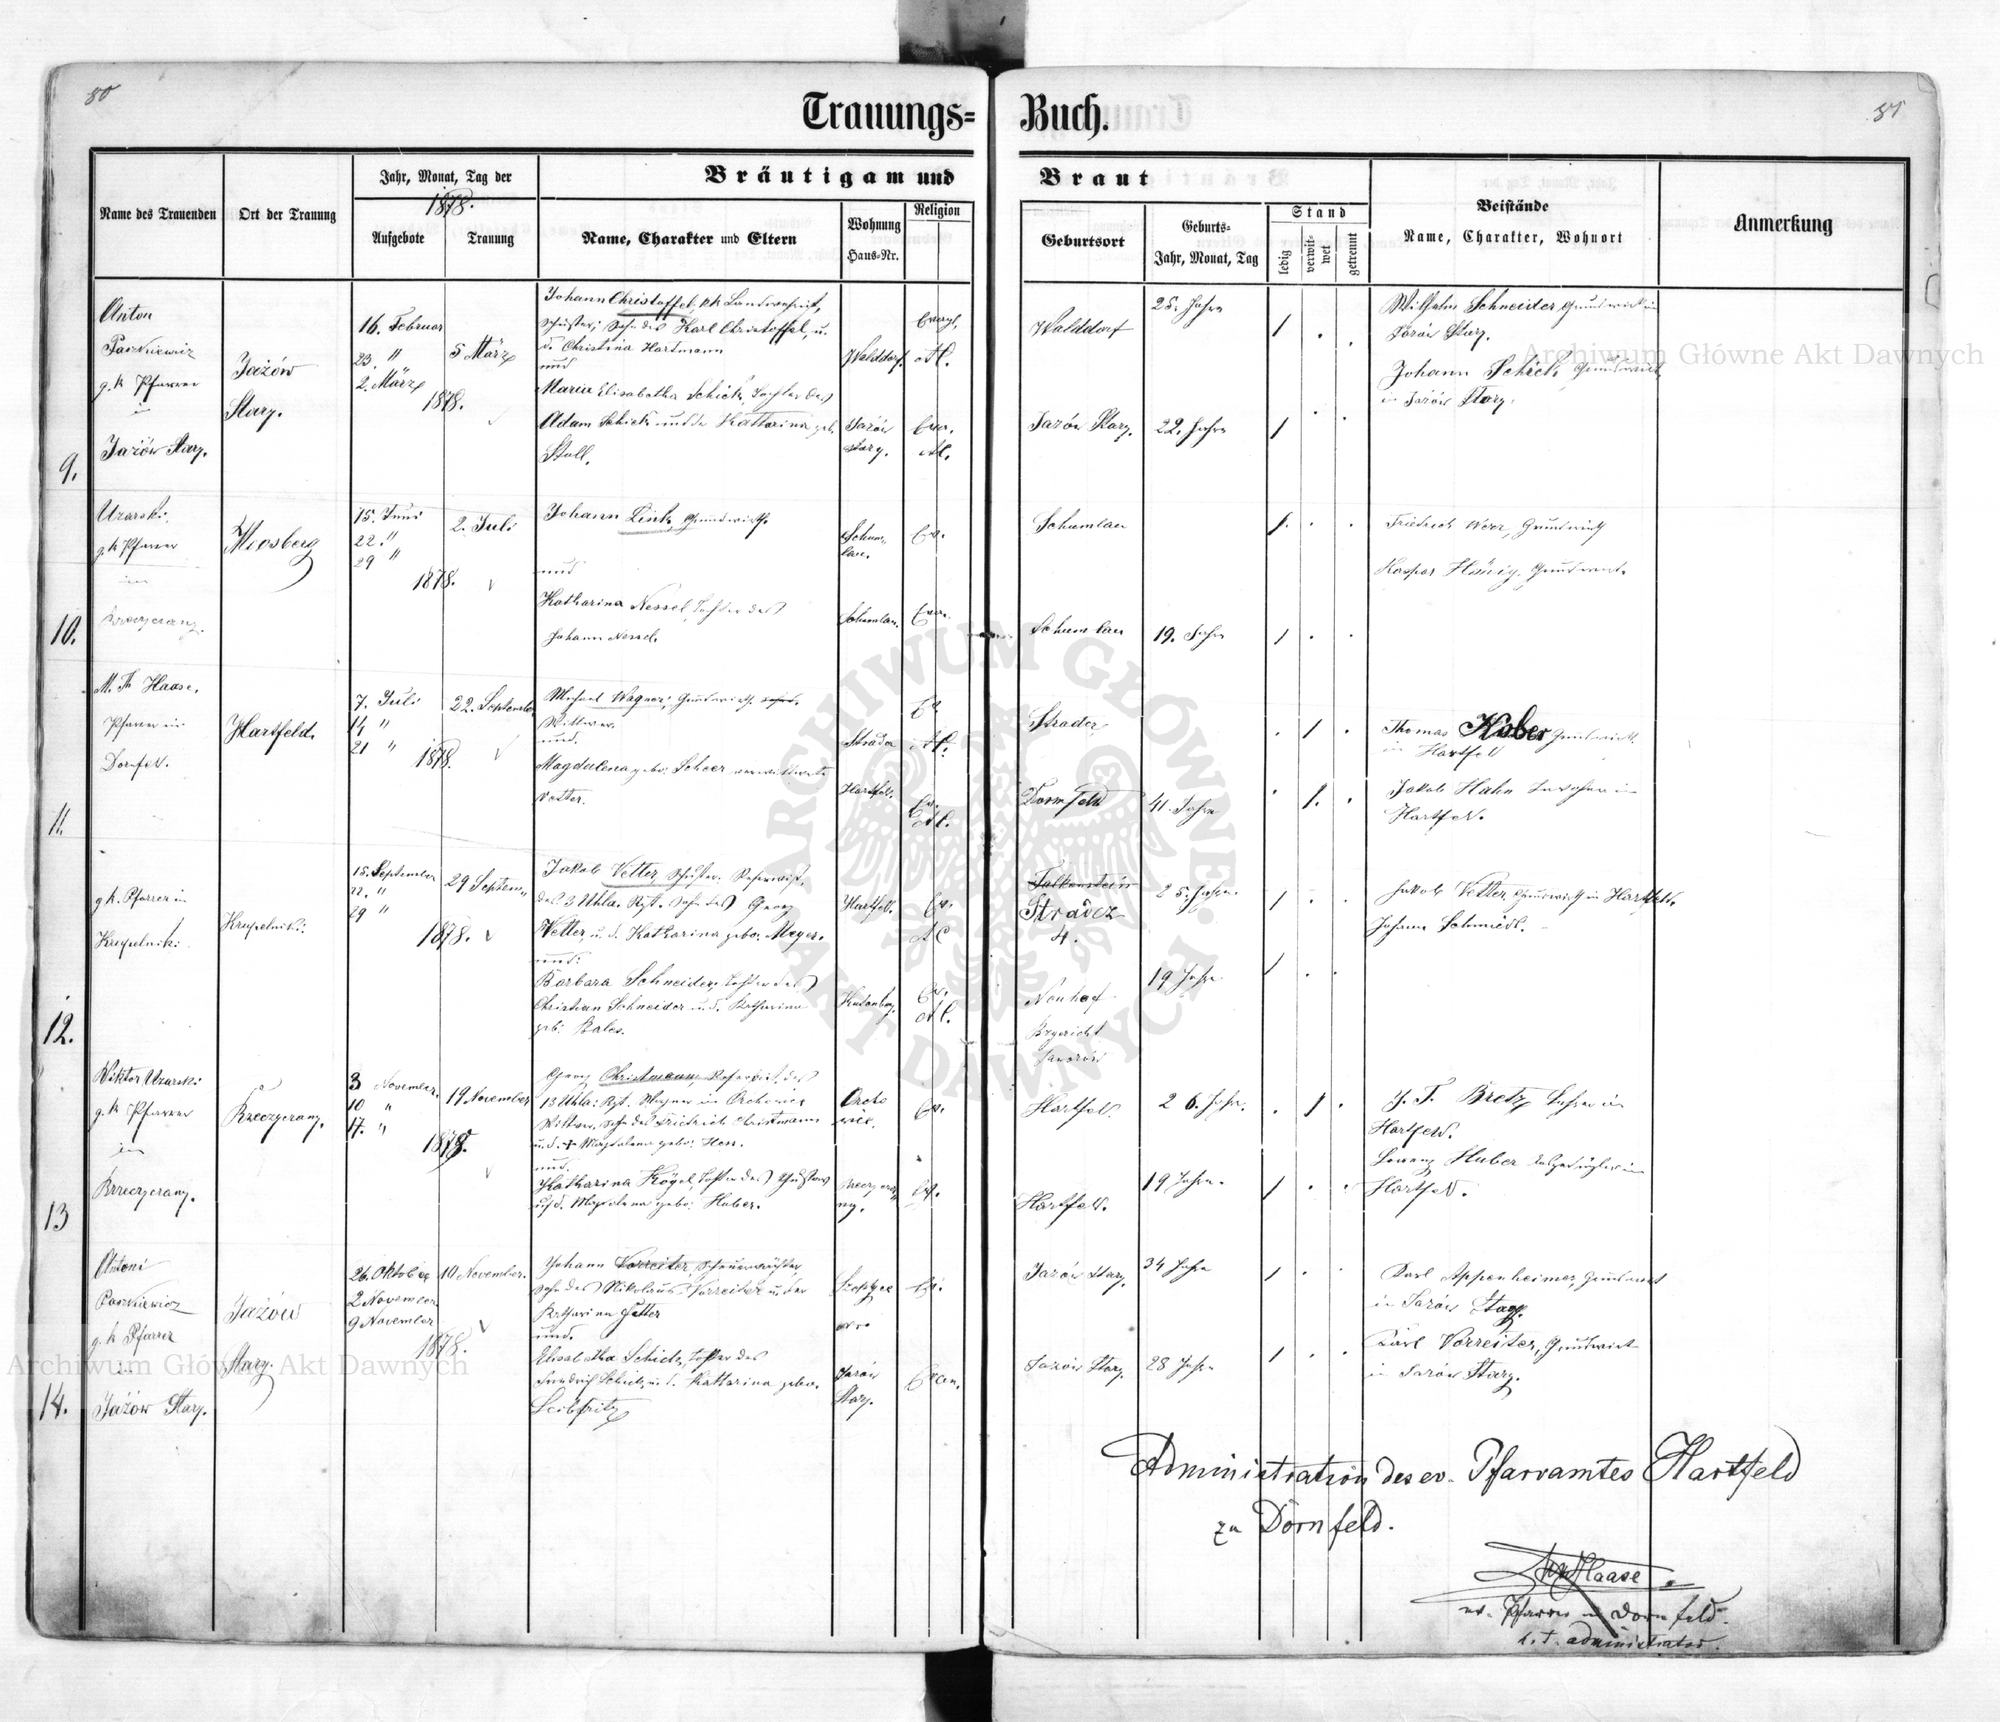 80
81
Trauungs= Buch.
Name des Trauenden
Ort der Trauung
Jahr, Monat, Tag der
1878.
Aufgebote
Trauung
Bräutigam und Braut
Name, Charakter und Eltern
Wohnung
Haus=Nr.
Religion
Geburtsort
Geburts=
Jahr, Monat, Tag
Stand
ledig
verwit=
wet
getrennt
Beistände
Name, Charakter, Wohnort
Anmerkung
9.
Anton
Paszkiewicz
g. k Pfarrer
in
Jazów Stary.
Jazów
Stary.
16. Februar
23. "
2. März
1878.
5 März
Johann Christoffel, kk Landwehrist,
Schuster; Sohn des Karl Christoffel, u.
d. Christina Hartmann
und
Maria Elisabetha Schick, Tochter des
Adam Schick und der Katharina geb.
Stall.
Walddorf.
Jazów
Stary.
Evang.
A.C.
Evan.
A.C.
Walddorf
Jazów Stary.
25. Jahre
22. Jahre
Wilhelm Schneider, Grundwirth in
Jazów Stary.
Johann Schick, Grundwirth,
in Jazów Stary.
10.
Uzarski,
g. k Pfarrer
in
Brzeczerany.
Moosberg
15. Juni
22. "
29 "
1878.
2. Juli
Johann Link, Grundwirth
und
Katharina Nessel, Tochter des
Johann Nessel.
Schum-
lau.
Schumlau.
Ev.
Evan.
Schumlau
Schumlau
19. Jahre
Friedrich Grundwirth
Kaspar König, Grundwirth.
11.
M. Th Haase,
Pfarrer in
Dornfeld.
Hartfeld.
7. Juli
14 "
21 "
1878.
22. September
Michael Wagner, Grundwirth
Wittwer.
und.
Magdalena geb. Scheer verwittwete
Vetter.
Stradcz
Hartfeld.
Ev.
A.C.
Ev.
A.C.
Stradcz
Dornfeld
41. Jahre
Thomas Huber Grundwirth
in Hartfeld
Jakob Hahn Inwohner in
Hartfeld.
12.
g. k. Pfarrer in
Krupelniki.
Krupelniki.
15. September
22. "
29 "
1878.
29 Septem.
Jakob Vetter, Schuster, Reservist,
des 3 Uhla. Rgt. Sohn des Georg
Vetter, u. d. Katharina geb. Meyer.
und:
Barbara Schneider, Tochter des
Christian Schneider u. d. Katharina
geb: Bales.
Hartfeld.
Ev.
A.C.
Ev.
A.C.
Falkenstein
Stradcz
4.
Neuhof
Bzgericht
Jaworów
25. Jahre.
19 Jahre
Jakob Vetter, Grundwirth in Hartfeld.
Johann Schmidt.
13
Wiktor Uzarski
g. k Pfarrer
in
Brzeczerany.
Brzeczerany.
3 November.
10 "
17. "
1878.
19 November
Georg Christmann, Reservist, des
13 Uhla: Rgt.
Wittwer, Sohn des Friedrich Christmann
u. d. + Magdalena geb. Hess.
und.
Katharina Kögel, Tochter des
u. d. Magdalena geb. Huber.
Ev.
Ev.
Hartfeld.
Hartfeld.
26. Jahre.
19 Jahre.
J. F. Bretz Lehrer in
Hartfeld.
Lorenz Huber in
Hartfeld.
14.
Antoni
Paszkiewicz
g. k Pfarrer
in
Jazów Stary.
Jazów
Stary.
26. Oktober
2 November
9 November
1878.
10 November.
Johann Vorreiter,
Sohn des Nikolaus Vorreiter u. der
Katharina Hetter
und.
Elisabetha Schick, Tochter des
Friedrich Schick, u. d. Katharina geb.
Leibfritz
Jazów
Stary.
Ev.
Evan.
Jazów Stary.
Jazów Stary.
34 Jahre
28 Jahre
Karl Appenheimer, Grundwirth
in Jazów Stary.
Karl Vorreiter, Grundwirth
in Jazów Stary.
Administration des ev. Pfarramtes Hartfeld
zu Dornfeld.
Haase
ev. Pfarrer in Dornfeld.
d. Z. administrator.
Archiwum Główne Akt Dawnych
Archiwum Główne Akt Dawnych
ARCHIWUM GŁÓWNE AKT DAWNYCH